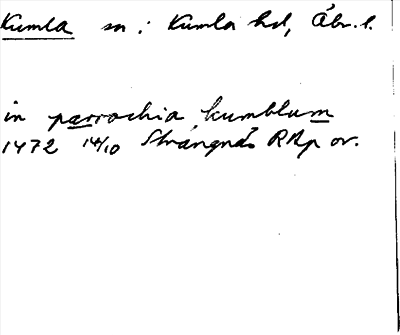 Kumla sn : Kumla hd, Ább. l.
in parrochia kumblum
1472 14/10 Strängnäs RAp or.